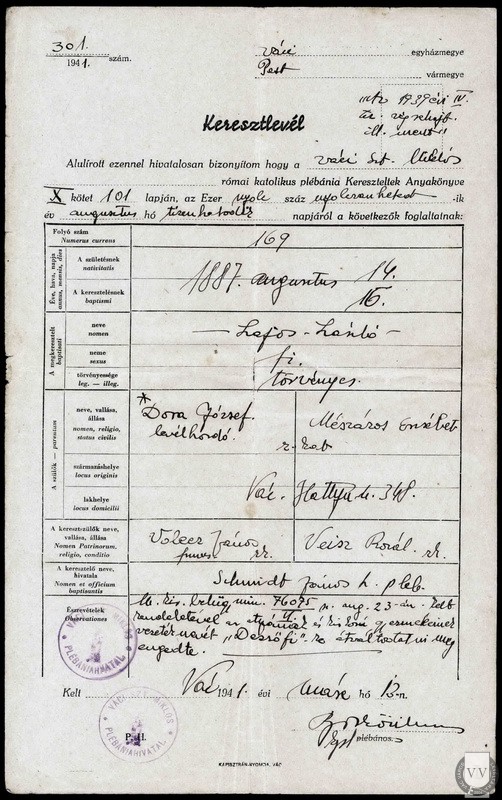 301.
1941. szám.
váci egyházmegye
Pest vármegye
1939 évi IV.
tc. végrehajt.
ill. ment.
Keresztlevél
Alulírott ezennel hivatalosan bizonyítom hogy a váci Szt. Miklós
római katolikus plébánia Kereszteltek Anyakönyve
X kötet 101 lapján, az Ezer nyolc száz nyolcvanhetedik -ik
év augusztus hó tizenhatodik napjáról a következők foglaltatnak:
Folyó szám
Numerus currens
169
Éve, hava, napja
annus, mensis, dies
A születésnek
nativitatis
A keresztelésnek
baptismi
1887. augusztus 14.
16.
A megkeresztelt
baptisati
neve
nomen
Lajos-László
neme
sexus
fi.
törvényessége
leg. — illeg.
törvényes.
A szülők — parentum
neve, vallása,
állása
nomen, religio,
status civilis
*
Dora József
levélhordó.
Mészáros Erzsébet
származáshelye
locus originis
lakhelye
locus domicilii
Vác. Hattyú u. 348.
A keresztszülők neve,
vallása, állása
Nomen Patrinorum,
religio, conditio
János
rk.
Veisz Rozál. rk.
A keresztelő neve,
hivatala
Nomen et officium
baptisantis
Schmidt János h. pleb.
Észrevételek
Observationes
M. kir. belügymin. 76075 aug. 23-án kelt
rendeletével az atyának és kiskorú gyermekeinek
vezetéknevét „Dezsőfi"-re átváltoztatni meg
engedte.
Kelt Vác 1941. évi márc hó 12-n.
P. H.
plébános.
PLÉBÁNIAHIVATAL
PLÉBÁNIAHIVATAL
KAPISZTRÁN-NYOMDA, VÁC
VV